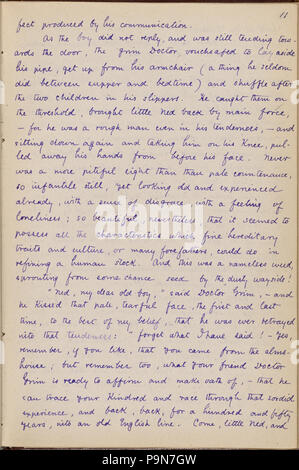 11
fect produced by his communication.
As the boy did not reply, and was still tending tow-
ards the door, the grim Doctor vouchsafed to lay aside
his pipe, get up from his armchair (a thing he seldom
did between supper and bedtime) and shuffle after
the two children in his slippers. He caught them on
the threshold, brought little Ned back by main force,
– for he was a rough man even in his tenderness, – and
sitting down again and taking him on his knee, pul-
led away his hands from before his face. Never
was a more pitiful sight than that pale countenance,
so infantile still, yet looking old and experienced
already, with a sense of disgrace, with a feeling of
loneliness; so beautiful, nevertheless, that it seemed to
possess all the characteristics which fine hereditary
traits and culture, or many forefathers, could do in
refining a human stock. And this was a nameless weed,
sprouting from some chance seed by the dusty wayside!
"Ned, my dear old boy," said Doctor Grim, – and
he kissed that pale, tearful face, the first and last
time, to the best of my belief, that he was ever betrayed
into that tenderness: "forget what I have said! – Yes,
remember, if you like, that you came from the alms-
house; but remember too, what your friend Doctor
Grim is ready to affirm and make oath of, – that he
can trace your kindred and race through that sordid
experience, and back, back, for a hundred and fifty
years, into an old English line. Come, little Ned, and
alamy
www.alamy.com - P9N7GW